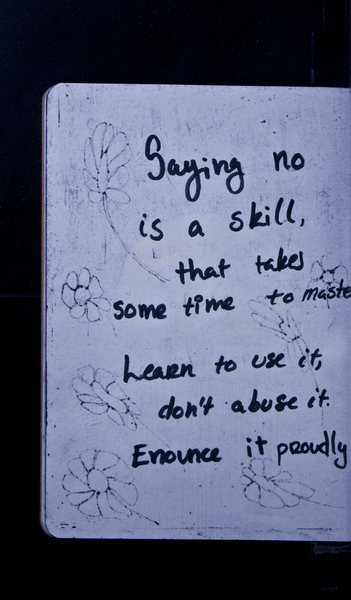 Saying no
is a skill,
that takes
some time to maste
Learn to use it,
don't abuse it.
Enounce it proudly